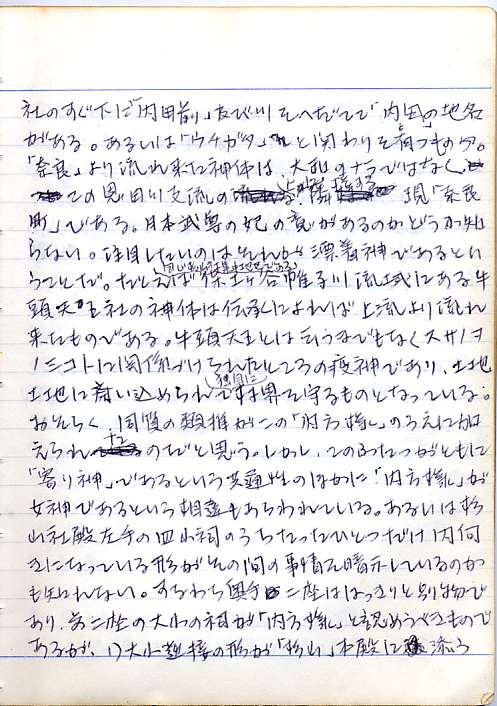 社のすぐ下に「内田前」及び川をへだてて「内田」の地名
がある。あるいは「ウチガタ」と関わりを有つものか。
「奈良」より流れ来た神体は、大和のナラではなく、
この恩田川支流の 隣接する 現「奈良
町」である。日本武尊の妃の意があるのかどうか知
らない。注目したいのはそれが漂着神であるとい
うことだ。たとえば 保土ヶ谷帷子川流域にある牛
頭天王社の神体は伝承によれば上流より流れ
来たものである。牛頭天王とは云うまでもなくスサノヲ
ノミコトに関係づけられたところの疫神であり、土地
土地に斎い込められて独自に村界を守るものとなっている。
おそらく同質の類推がこの「内方様」のうえに加
えられたのだと思う。しかし、このふたつがともに
「寄り神」であるという共通性のほかに「内方様」が
女神であるという相違もあらわれている。あるいは杉
山社殿左手の四小祠のうちたったひとつだけ内向
きになっている形がその間の事情を暗示しているのか
も知れない。すなわち奥手二座ははっきりと別物で
あり、前二座の大小の祠が「内方様」と認めうべきもので
あるが、1)大小連接の形が「杉山」本殿に添う